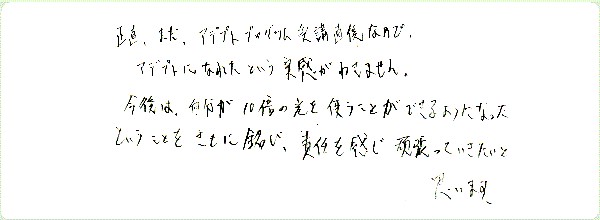 正直、まだ、アデプトプログラム受講直後なので、
アデプトになれたという実感がわきません。
今後は、何分が10倍の光を使うことができるようになった
ということをきもに銘じ、責任を感じ頑張っていきたいと
思います